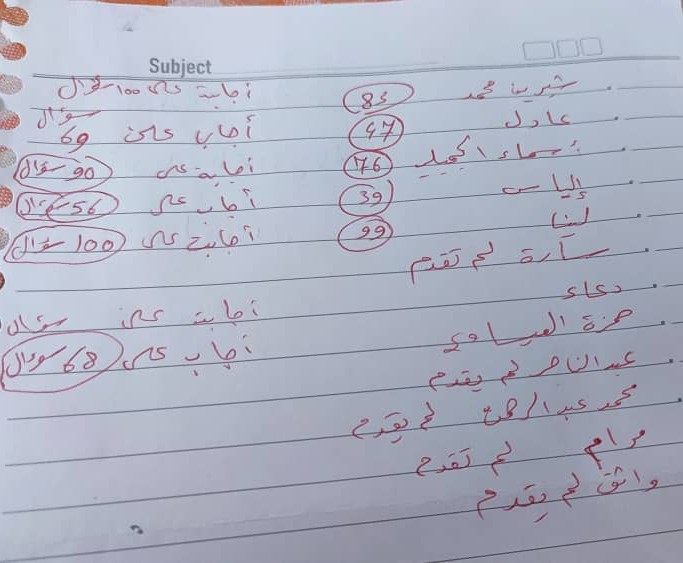 Subject
شيرين محمد 85 أجابت على 100 سؤال
عادل 47 أجاب على 69 سؤال
أسماء الجميلي 76 أجابت على 90 سؤال
إلياس 39 أجاب على 56 سؤال
لينا 99 أجابت على 100 سؤال
سارة لم تقدم
دعاء أجابت على سؤال
حمزة العيساوي أجاب على 68 سؤال
عبد الناصر لم يقدم
محمد عبد الرحمن لم يقدم
مرام لم تقدم
واثق لم يقدم